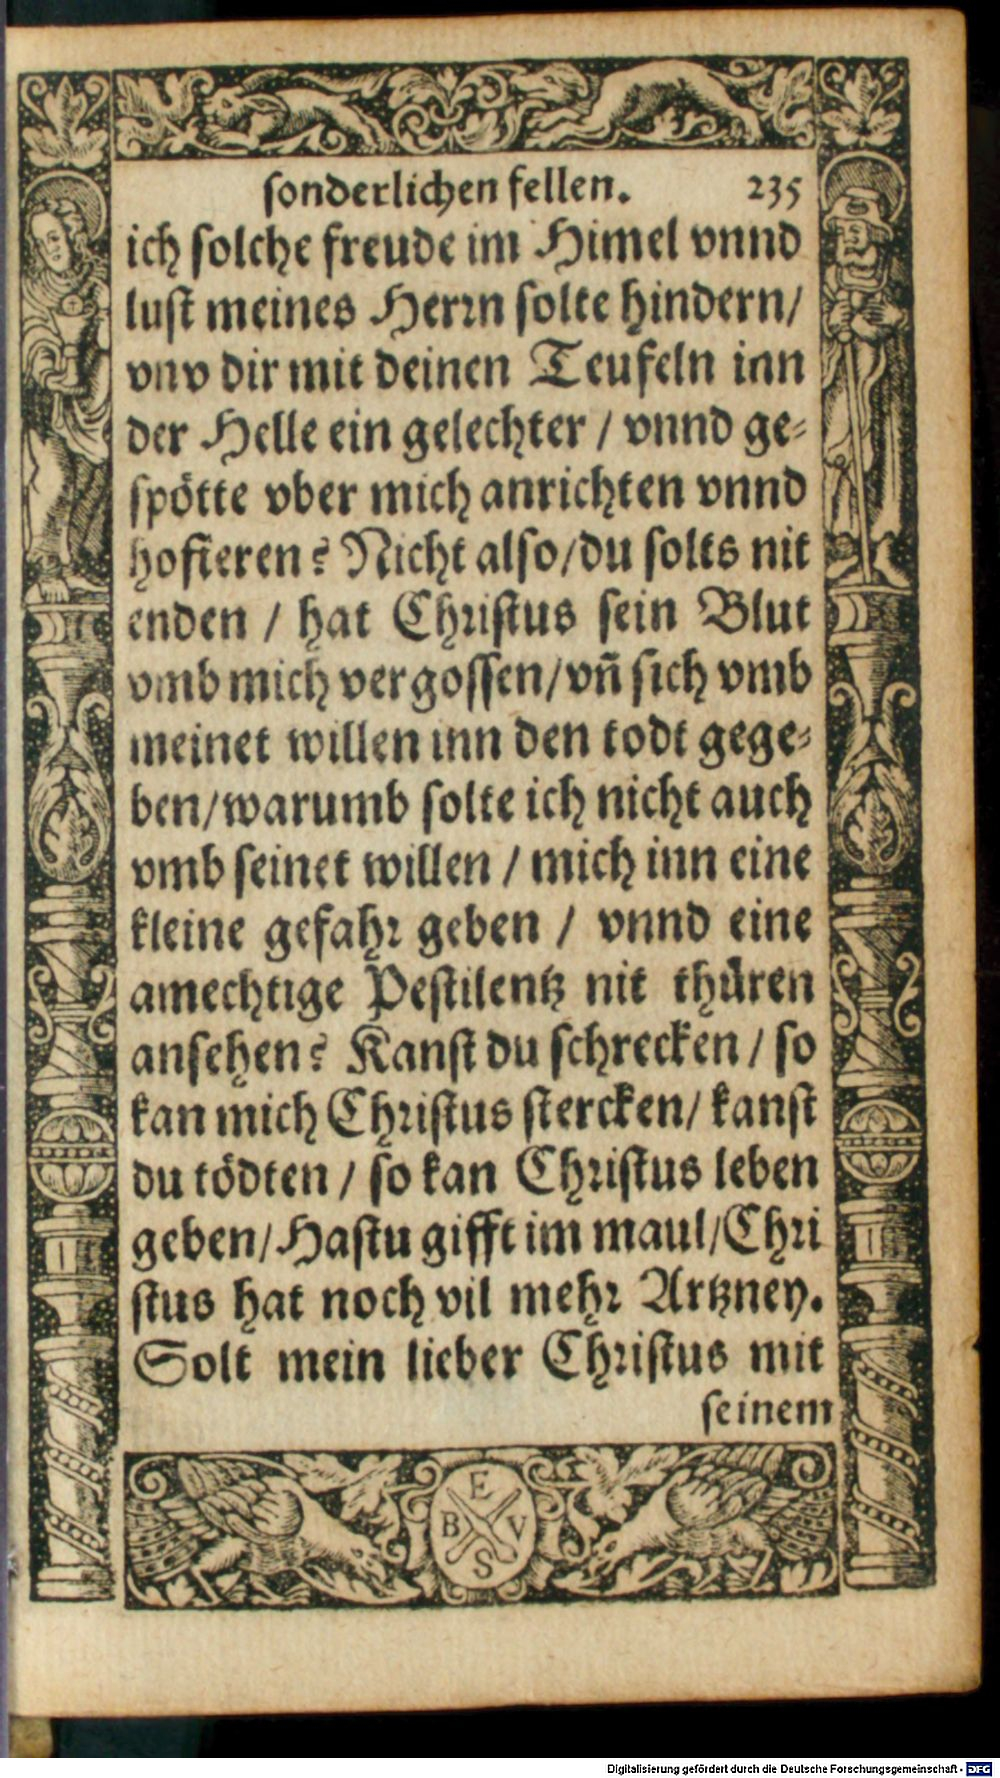 sonderlichen fellen. 235
ich solche freude im Himel vnnd
lust meines Herrn solte hindern/
vnv dir mit deinen Teufeln inn
der Helle ein gelechter / vnnd ge-
spötte vber mich anrichten vnnd
hofieren? Nicht also/du solts nit
enden / hat Christus sein Blut
vmb mich vergossen/vñ sich vmb
meinet willen inn den todt gege-
ben/warumb solte ich nicht auch
vmb seinet willen / mich inn eine
kleine gefahr geben / vnnd eine
amechtige Pestilentz nit thüren
ansehen? Kanst du schrecken / so
kan mich Christus stercken/ kanst
du tödten / so kan Christus leben
geben/Hastu gifft im maul/Chri
stus hat noch vil mehr Artzney.
Solt mein lieber Christus mit
seinem
E
B V
S
Digitalisierung gefördert durch die Deutsche Forschungsgemeinschaft - DFG